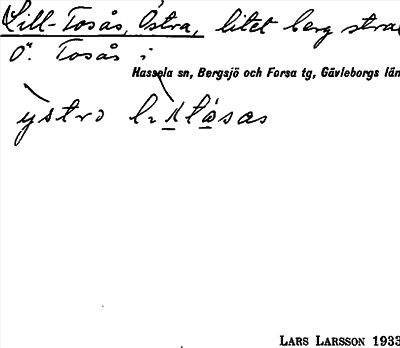 Lill-Tosås, Östra, litet berg strax
Ö. Tosås i
Hassela sn, Bergsjö och Forsa tg, Gävleborgs län
LARS LARSSON 1933